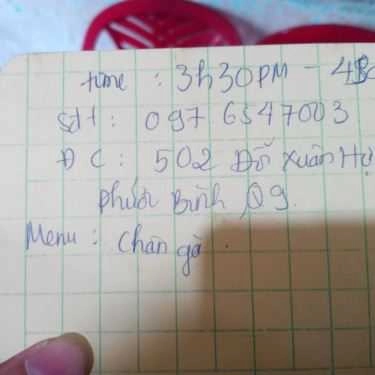 time : 3h30PM -
sđt : 097 6547003
ĐC : 502 Đỗ Xuân Hợ
Phước Bình, Q9.
Menu : Chân gà.